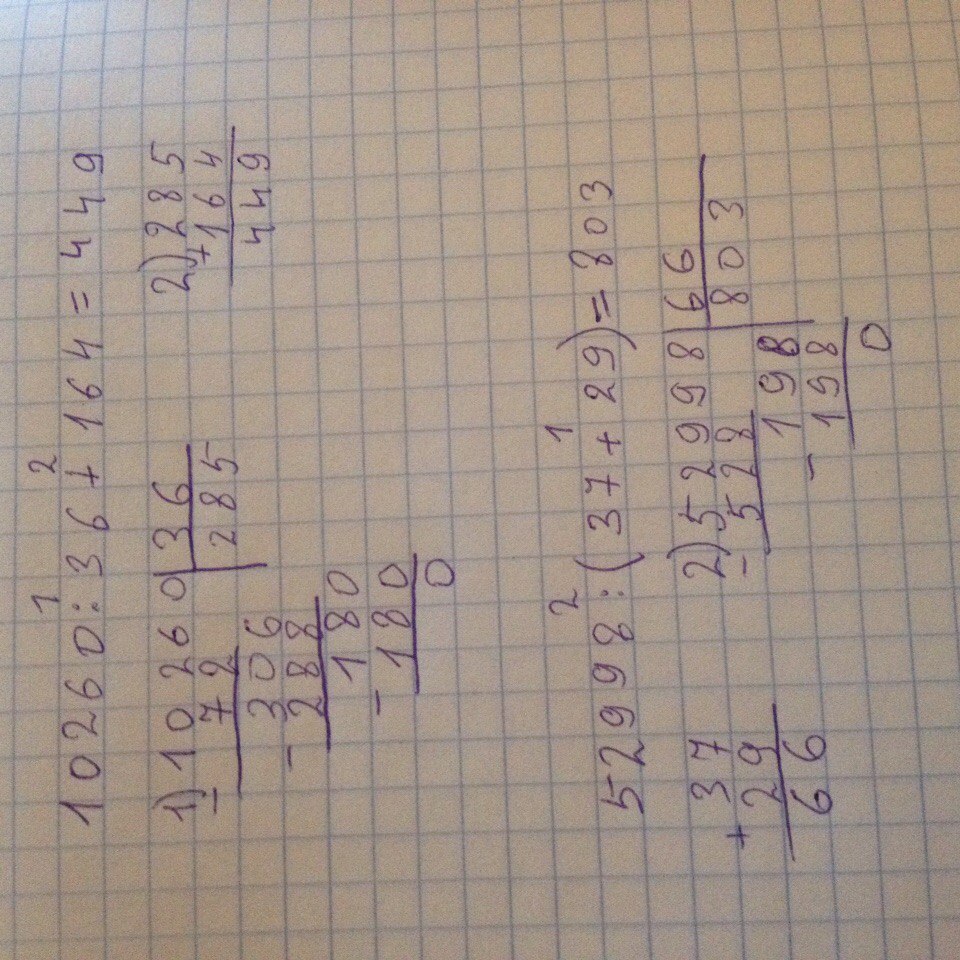 1 2
10260:36+164=449
1) 10260 36
- 72 285
306
- 288
180
- 180
0
2) 285
+ 164
449
2 1
52998:(37+29)=803
37
+ 29
66
2) 52998 66
- 528 803
198
- 198
0